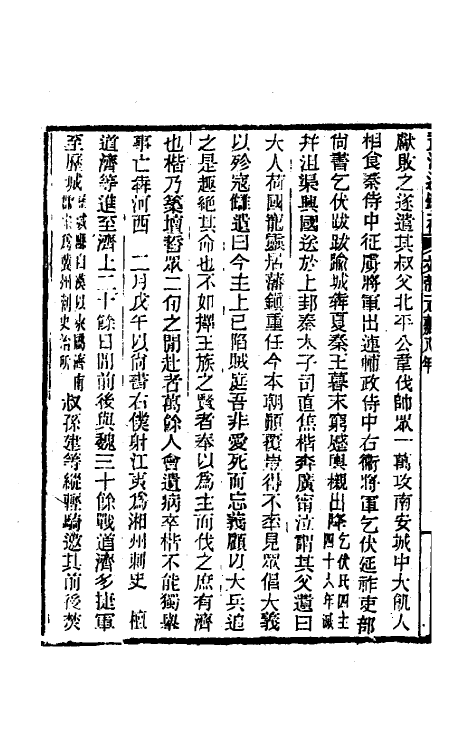 獻敗之遂遣其叔父北平公韋伐帥眾一萬攻南安城中大飢人
相食秦侍中征虜將軍出連輔政侍中右衞將軍乞伏延祚吏部
尚書乞伏跋跋踰城奔夏秦王暮末窮蹙輿櫬出降乞伏氏四主四十六年滅
并沮渠興國送於上邽秦太子司直焦楷奔廣甯泣謂其父遺曰
大人荷國寵靈居藩鎮重任今本朝顛覆豈得不率見眾倡大義
以殄寇讎遺曰今主上已陷賊庭吾非愛死而忘義顧以大兵追
之是趣絕其命也不如擇王族之賢者奉以為主而伐之庶有濟
也楷乃築壇誓眾二旬之閒赴者萬餘人會遺病卒楷不能獨舉
事亡奔河西 二月戊午以尚書右僕射江夷為湘州刺史 檀
道濟等進至濟上二十餘日閒前後與魏三十餘戰道濟多捷軍
至歷城 叔孫建等縱輕騎邀其前後焚